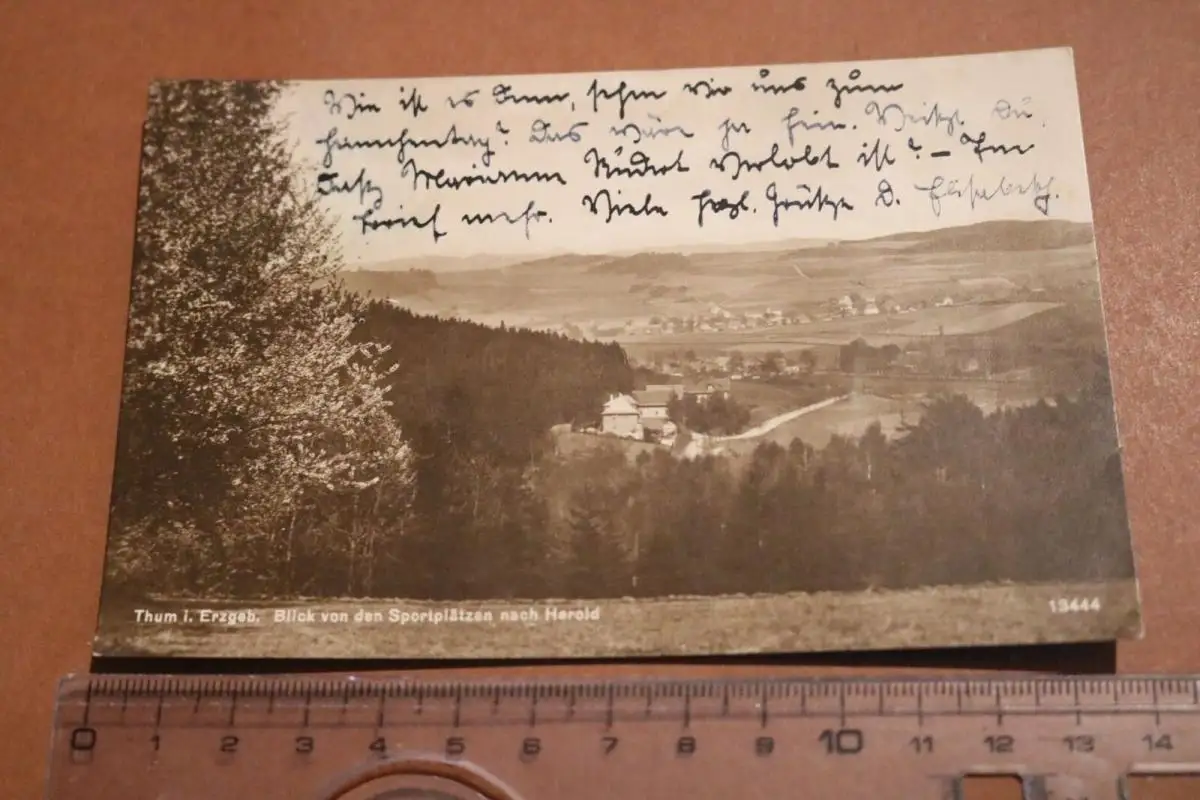 Wie ist es denn, sehen wir uns zum
Hannchentag? Das wäre zu fein. Weißt Du,
daß Marianne Rudert verlobt ist? – Im
Brief mehr. Viele herzl. Grüße D. Elisabeth.
Thum i. Erzgeb. Blick von den Sportplätzen nach Herold
13444
0 1 2 3 4 5 6 7 8 9 10 11 12 13 14